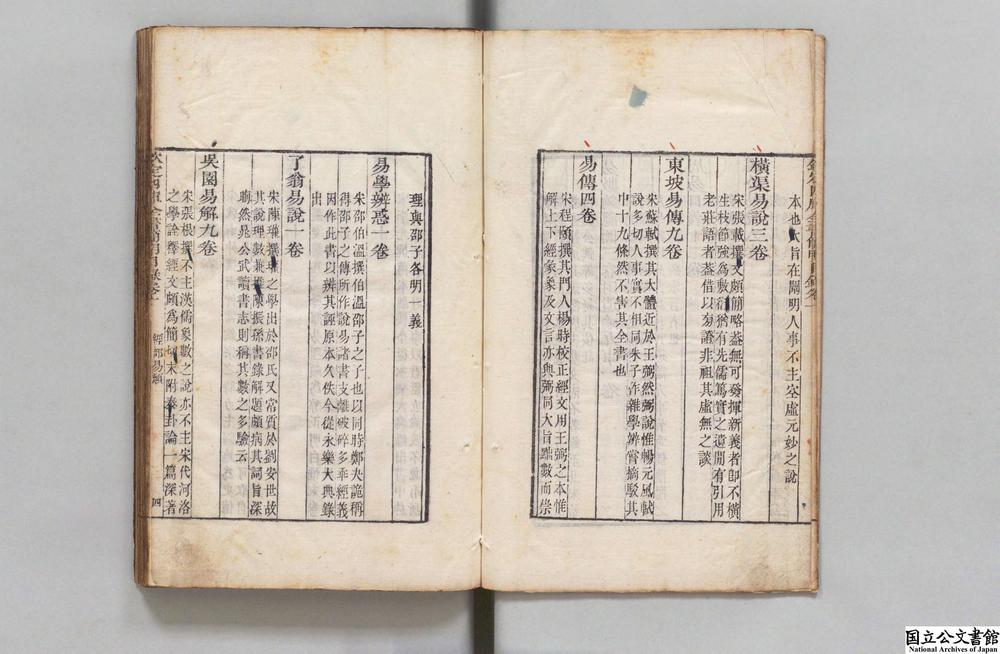 本也大旨在闡明人事不主空虛元妙之說
橫渠易說三卷
宋張載撰文頗簡略蓋無可發揮新義者卽不橫
生枝節強為敷衍猶有先儒篤實之遺閒有引用
老莊語者蓋借以旁證非祖其虛無之談
東坡易傳九卷
宋蘇軾撰其大體近於王弼然弼說惟暢元風軾
說多切人事實不相同朱子作雜學辨嘗摘駁其
中十九條然不害其全書也
易傳四卷
宋程頤撰其門人楊時校正經文用王弼之本惟
解上下經彖象及文言亦與弼同大旨黜數而崇
理與邵子各明一義
易學辨惑一卷
宋邵伯溫撰伯溫邵子之子也以同時鄭夬詭稱
得邵子之傳所作說易諸書支離破碎多乖經義
因作此書以辨其誣原本久佚今從永樂大典錄
出
了翁易說一卷
宋陳瓘撰瓘之學出於邵氏又常質於劉安世故
其說理數兼推陳振孫書錄解題頗病其詞旨深
晦然晁公武讀書志則稱其數之多驗云
吳園易解九卷
宋張根撰不主漢儒象數之說亦不主宋代河洛
之學詮釋經文頗為簡切末附泰卦論一篇深著
經部易類
四
国立公文書館
National Archives of Japan